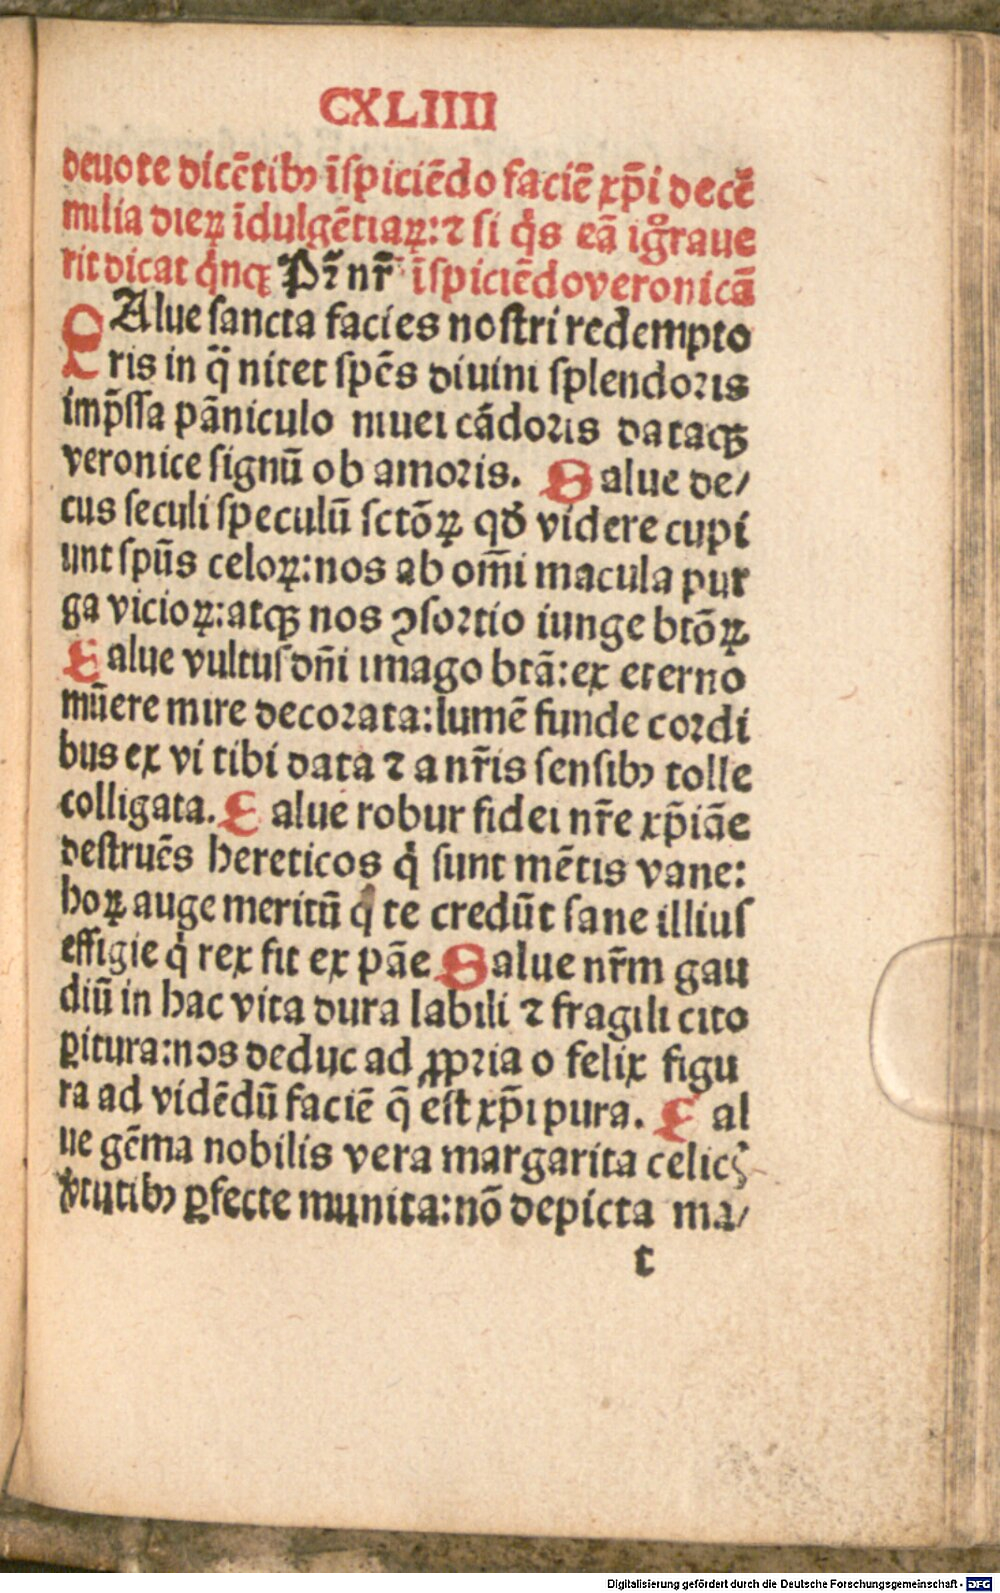 CXLIIII
deuote dicẽtibꝰ ĩspiciẽdo faciẽ xp̃i decẽ
milia dieꝝ ĩdulgẽtiaꝝ: ⁊ si qͥs eã igͦraue
rit dicat qͥnqꝫ Pr̃ nr̃ ĩspiciẽdoveronicã
SAlue sancta facies nostri redempto
ris in q̃ nitet spẽs diuini splendoris
imp̃ssa pãniculo niuei cãdoris dataqꝫ
veronice signũ ob amoris. Salue de/
cus seculi speculũ sctõꝝ qd̃ videre cupi
unt spũs celoꝝ: nos ab om̃i macula pur
ga vicioꝝ: atqꝫ nos ꝯsortio iunge btõꝝ
Salue vultus dñi imago btã: ex eterno
mũere mire decorata: lumẽ funde cordi
bus ex vi tibi data ⁊ a nr̃is sensibꝰ tolle
colligata. Salue robur fidei nr̃e xp̃iãe
destruẽs hereticos qͥ sunt mẽtis vane:
hoꝝ auge meritũ qͥ te credũt sane illius
effigie qͥ rex fit ex pãe Salue nr̃m gau
diũ in hac vita dura labili ⁊ fragili cito
ꝑitura: nos deduc ad ꝓpria o felix figu
ra ad vidẽdũ faciẽ q̃ est xp̃i pura. Sal
ue gẽma nobilis vera margarita celicꝭ
v̾tutibꝰ ꝑfecte munita: nõ depicta ma/
t
Digitalisierung gefördert durch die Deutsche Forschungsgemeinschaft - DFG